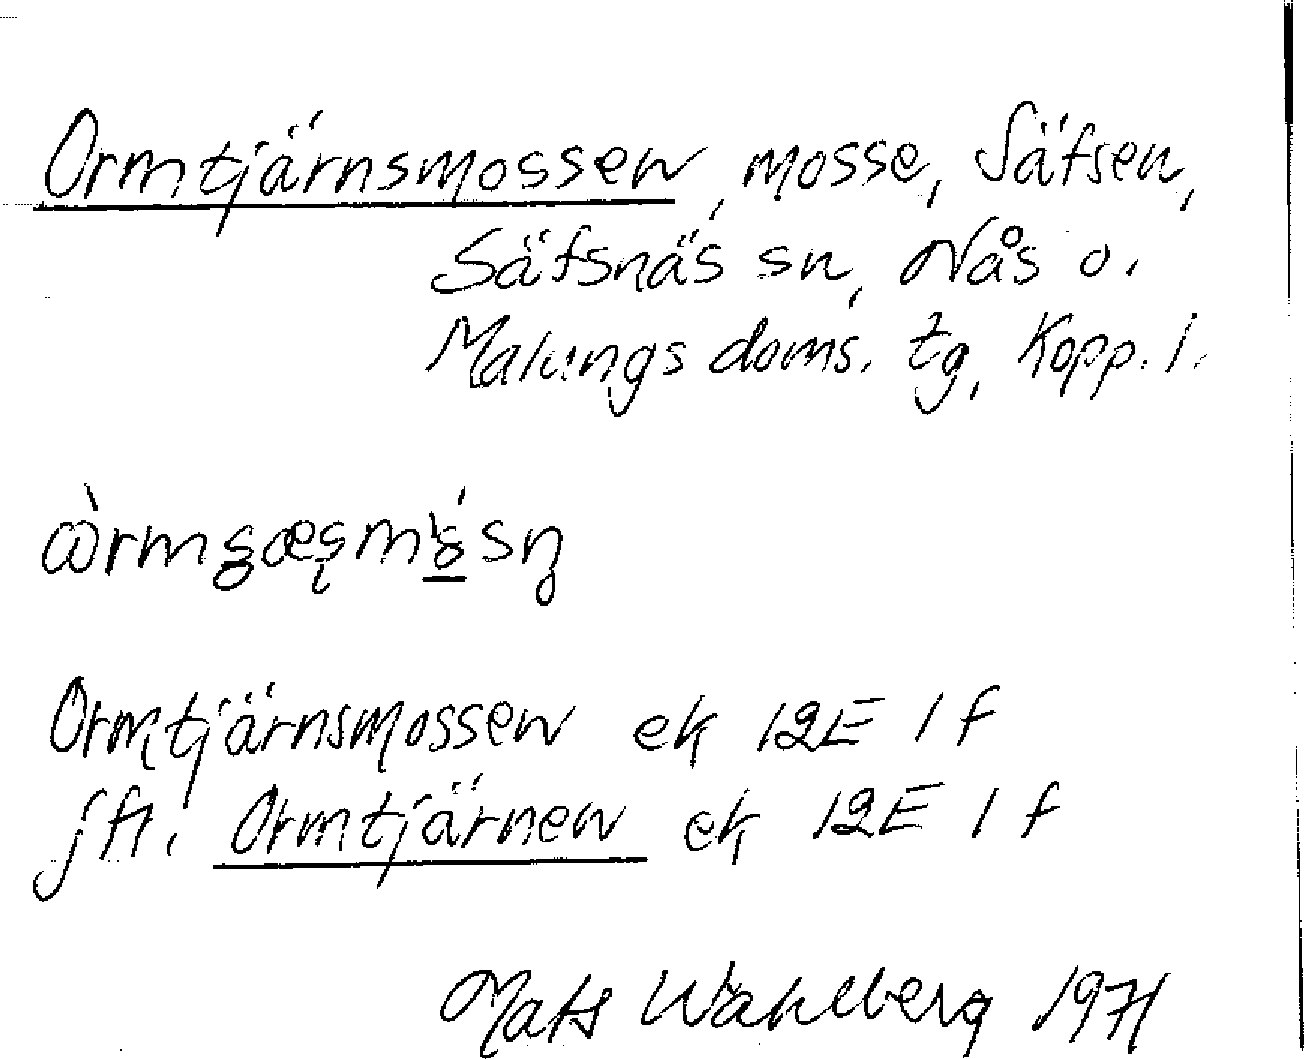 Ormtjärnsmossen, mosse, Säfsen,
Säfsnäs sn, Nås o.
Malungs doms. tg, Kopp. l.
Ormtjärnsmossen ek 12E 1 f
jfr. Ormtjärnen ek 12E 1 f
Mats Wahlberg 1971